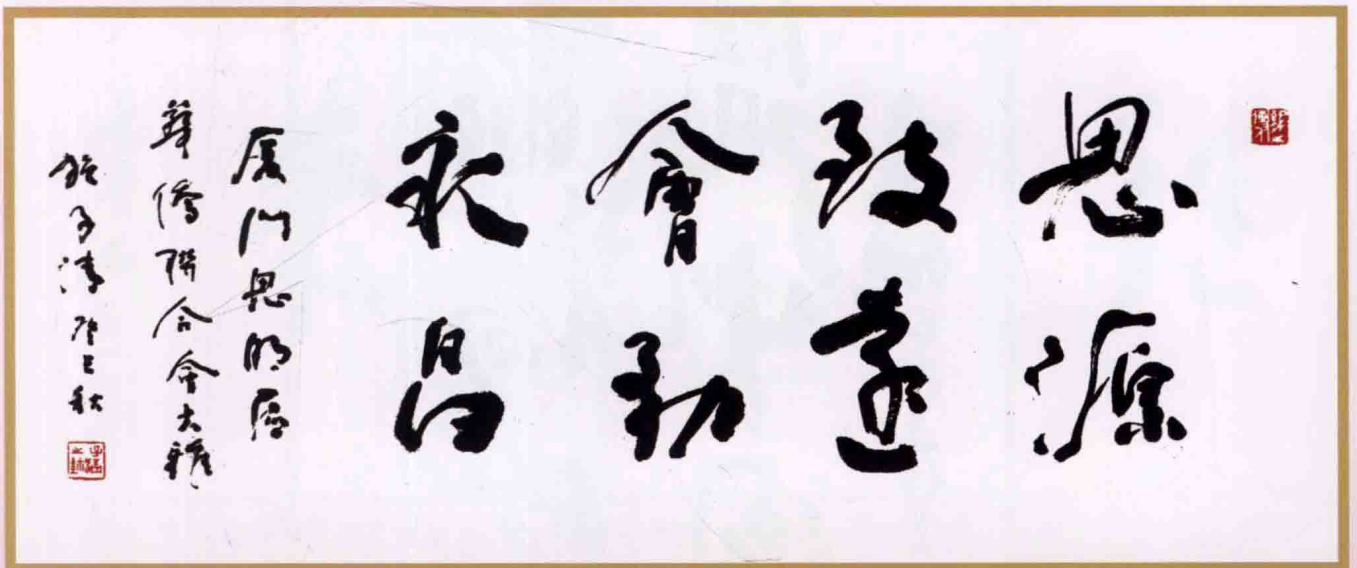 思源
致遠
會
永昌
厦門思明區
華僑聯合會大雅
施子清 癸巳秋